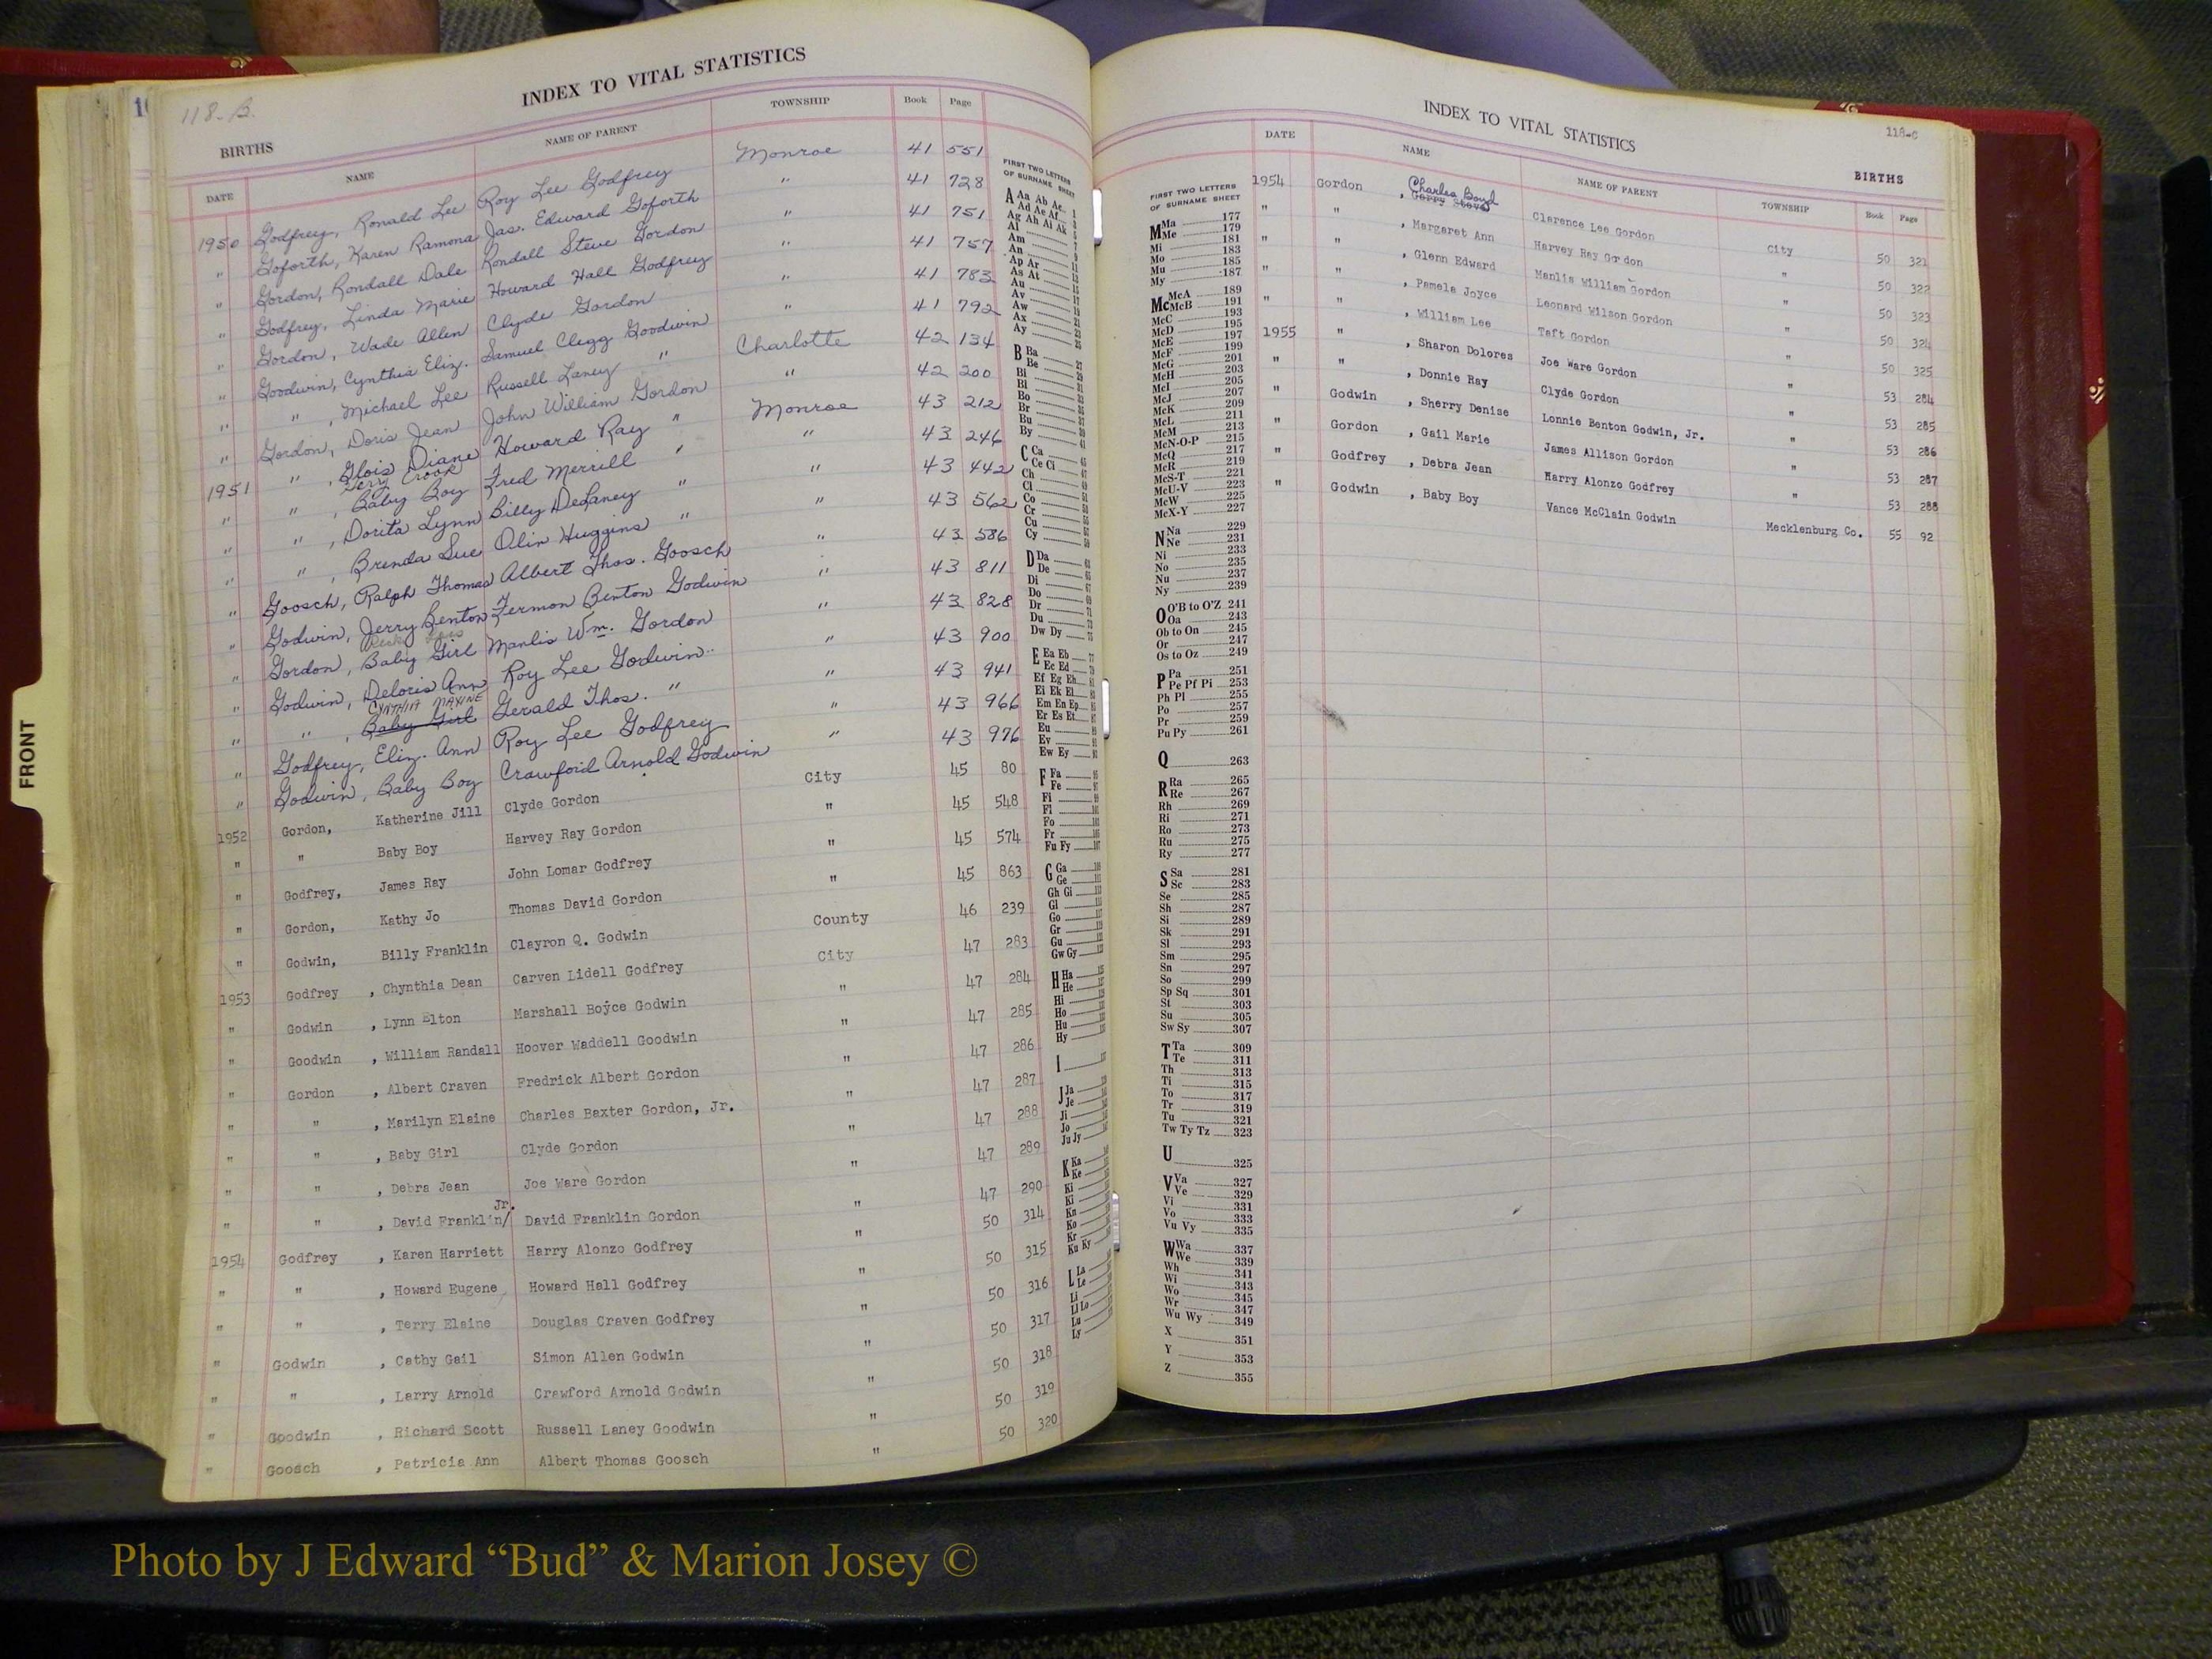 118-B.
INDEX TO VITAL STATISTICS
BIRTHS
DATE NAME NAME OF PARENT TOWNSHIP Book Page
1950 Godfrey, Ronald Lee Roy Lee Godfrey Monroe 41 551
" Goforth, Karen Ramona Jas. Edward Goforth " 41 728
" Gordon, Rondall Dale Rondall Steve Gordon " 41 751
" Godfrey, Linda Marie Howard Hall Godfrey " 41 757
" Gordon, Wade Allen Clyde Gordon " 41 783
" Goodwin, Cynthia Eliz. Samuel Clegg Goodwin " 41 792
" " , Michael Lee Russell Laney " Charlotte 42 134
" Gordon, Doris Jean John William Gordon " 42 200
1951 " , Glois Diane Howard Ray " Monroe 43 212
" " , Baby Boy Fred Merrill " " 43 246
" " , Dorita Lynn Billy DeLaney " " 43 442
" " , Brenda Sue Olin Huggins " " 43 562
" Goosch, Ralph Thomas Albert Thos. Goosch " 43 586
" Godwin, Jerry Benton Fermon Benton Godwin " 43 811
" Gordon, Baby Girl Manlis Wm. Gordon " 43 828
" Godwin, Deloris Ann Roy Lee Godwin " 43 900
CYNTHIA MAXINE
" " , Baby Girl Gerald Thos. " " 43 941
" Godfrey, Eliz. Ann Roy Lee Godfrey " 43 966
" Godwin, Baby Boy Crawford Arnold Godwin " 43 976
1952 Gordon, Katherine Jill Clyde Gordon City 45 80
" " Baby Boy Harvey Ray Gordon " 45 548
" Godfrey, James Ray John Lomar Godfrey " 45 574
" Gordon, Kathy Jo Thomas David Gordon " 45 863
" Godwin, Billy Franklin Clayron Q. Godwin County 46 239
1953 Godfrey , Chynthia Dean Carven Lidell Godfrey City 47 283
" Godwin , Lynn Elton Marshall Boyce Godwin " 47 284
" Goodwin , William Randall Hoover Waddell Goodwin " 47 285
" Gordon , Albert Craven Fredrick Albert Gordon " 47 286
" " , Marilyn Elaine Charles Baxter Gordon, Jr. " 47 287
" " , Baby Girl Clyde Gordon " 47 288
" " , Debra Jean Joe Ware Gordon " 47 289
" " , David Franklin/ Jr. David Franklin Gordon " 47 290
1954 Godfrey , Karen Harriett Harry Alonzo Godfrey " 50 314
" " , Howard Eugene Howard Hall Godfrey " 50 315
" " , Terry Elaine Douglas Craven Godfrey " 50 316
" Godwin , Cathy Gail Simon Allen Godwin " 50 317
" " , Larry Arnold Crawford Arnold Godwin " 50 318
" Goodwin , Richard Scott Russell Laney Goodwin " 50 319
" Goosch , Patricia Ann Albert Thomas Goosch " 50 320
FRONT
FIRST TWO LETTERS
OF SURNAME SHEET
A Aa Ab Ac
Ad Ae Af
Ag Ah Ai Ak
Al
Am
An
Ap Ar
As At
Au
Av
Aw
Ax
Ay
B Ba
Be
Bi
Bl
Bo
Br
Bu
By
C Ca
Ce Ci
Ch
Cl
Co
Cr
Cu
Cy
D Da
De
Di
Do
Dr
Du
Dw Dy
E Ea Eb
Ec Ed
Ef Eg Eh
Ei Ek El
Em En Ep
Er Es Et
Eu
Ev
Ew Ey
F Fa
Fe
Fi
Fl
Fo
Fr
Fu Fy
G Ga
Ge
Gh Gi
Gl
Go
Gr
Gu
Gw Gy
H Ha
He
Hi
Ho
Hu
Hy
I
J Ja
Je
Ji
Jo
Ju Jy
K Ka
Ke
Ki
Kl
Kn
Ko
Kr
Ku Ky
L La
Le
Li
Ll Lo
Lu
Ly
INDEX TO VITAL STATISTICS
118-C
BIRTHS
DATE NAME NAME OF PARENT TOWNSHIP Book Page
1954 Gordon , Charles Boyd Clarence Lee Gordon City 50 321
" " , Margaret Ann Harvey Ray Gordon " 50 322
" " , Glenn Edward Manlis William Gordon " 50 323
" " , Pamela Joyce Leonard Wilson Gordon " 50 324
" " , William Lee Taft Gordon " 50 325
1955 " , Sharon Dolores Joe Ware Gordon " 53 284
" " , Donnie Ray Clyde Gordon " 53 285
" Godwin , Sherry Denise Lonnie Benton Godwin, Jr. " 53 286
" Gordon , Gail Marie James Allison Gordon " 53 287
" Godfrey , Debra Jean Harry Alonzo Godfrey " 53 288
" Godwin , Baby Boy Vance McClain Godwin Mecklenburg Co. 55 92
FIRST TWO LETTERS
OF SURNAME SHEET
M Ma 177
Me 179
Mi 181
Mo 183
Mu 185
My 187
Mc McA 189
McB 191
McC 193
McD 195
McE 197
McF 199
McG 201
McH 203
McI 205
McJ 207
McK 209
McL 211
McM 213
McN-O-P 215
McQ 217
McR 219
McS-T 221
McU-V 223
McW 225
McX-Y 227
N Na 229
Ne 231
Ni 233
No 235
Nu 237
Ny 239
O O'B to O'Z 241
Oa 243
Ob to On 245
Or 247
Os to Oz 249
P Pa 251
Pe Pf Pi 253
Ph Pl 255
Po 257
Pr 259
Pu Py 261
Q 263
R Ra 265
Re 267
Rh 269
Ri 271
Ro 273
Ru 275
Ry 277
S Sa 281
Sc 283
Se 285
Sh 287
Si 289
Sk 291
Sl 293
Sm 295
Sn 297
So 299
Sp Sq 301
St 303
Su 305
Sw Sy 307
T Ta 309
Te 311
Th 313
Ti 315
To 317
Tr 319
Tu 321
Tw Ty Tz 323
U 325
V Va 327
Ve 329
Vi 331
Vo 333
Vu Vy 335
W Wa 337
We 339
Wh 341
Wi 343
Wo 345
Wr 347
Wu Wy 349
X 351
Y 353
Z 355
Photo by J Edward “Bud” & Marion Josey ©